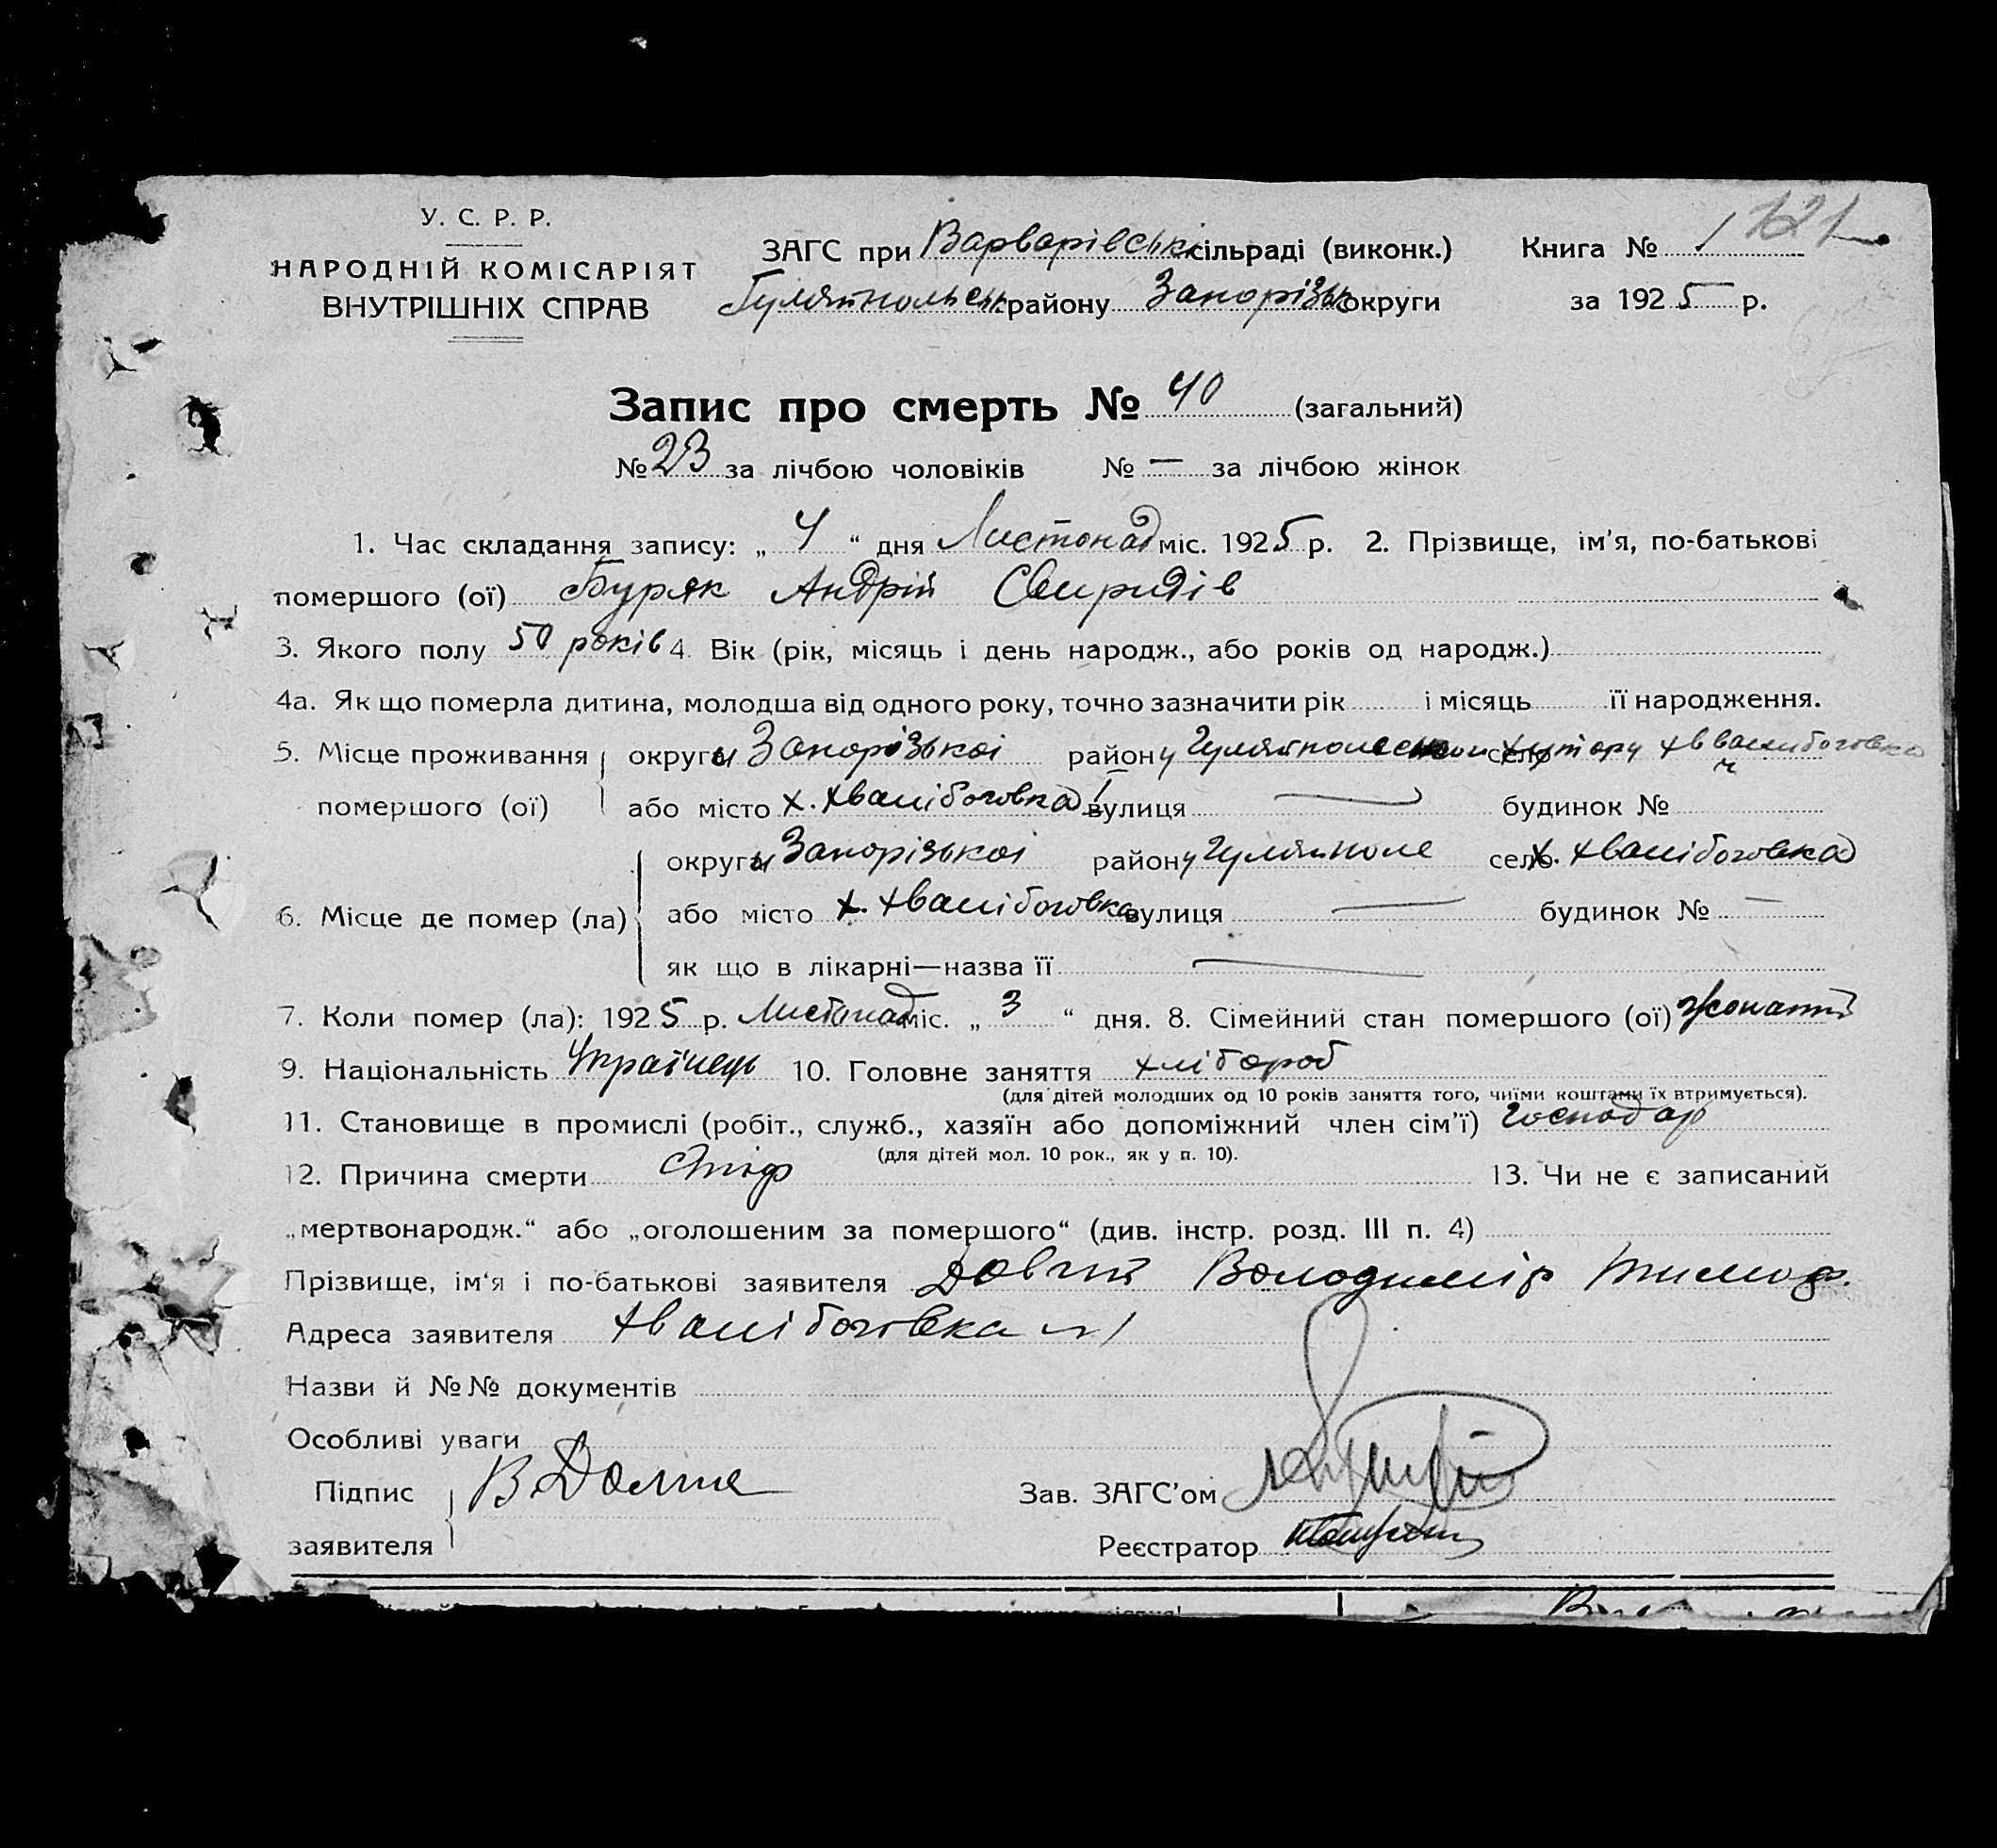 У. С. Р. Р.
НАРОДНІЙ КОМІСАРІЯТ
ВНУТРІШНІХ СПРАВ
ЗАГС при Варварівськ. сільраді (виконк.) Книга № 1 121
Гуляйпольськ. району Запорізьк. округи за 1925 р.
Запис про смерть № 40 (загальний)
№ 23 за лічбою чоловіків № — за лічбою жінок
1. Час складання запису: „ 4 “ дня Листопад міс. 1925 р. 2. Прізвище, ім'я, по-батькові
помершого (ої) Буряк Андрій Свиридів
3. Якого полу 50 років 4. Вік (рік, місяць і день народж., або років од народж.)
4а. Як що померла дитина, молодша від одного року, точно зазначити рік і місяць її народження.
5. Місце проживання округи Запорізькоі району село хутору
помершого (ої) або місто х. Хвалібоговка I вулиця — будинок №
округи Запорізькоі району Гуляйполе село х. Хвалібоговка
6. Місце де помер (ла) або місто х. Хвалібоговка вулиця — будинок № —
як що в лікарні—назва її —
7. Коли помер (ла): 1925 р. Листопад міс. „ 3 “ дня. 8. Сімейний стан помершого (ої) Жонатий
9. Національність Українець 10. Головне заняття хлібороб
(для дітей молодших од 10 років заняття того, чиїми коштами їх втримується).
11. Становище в промислі (робіт., служб., хазяїн або допоміжний член сім'ї) господар
(для дітей мол. 10 рок., як у п. 10).
12. Причина смерти Тиф 13. Чи не є записаний
„мертвонародж.“ або „оголошеним за помершого“ (див. інстр. розд. III п. 4)
Прізвище, ім'я і по-батькові заявителя Довгий Володимір Тимоф.
Адреса заявителя Хвалібоговка
Назви й №№ документів
Особливі уваги
Підпис В. Долгие Зав. ЗАГС'ом
заявителя Реєстратор